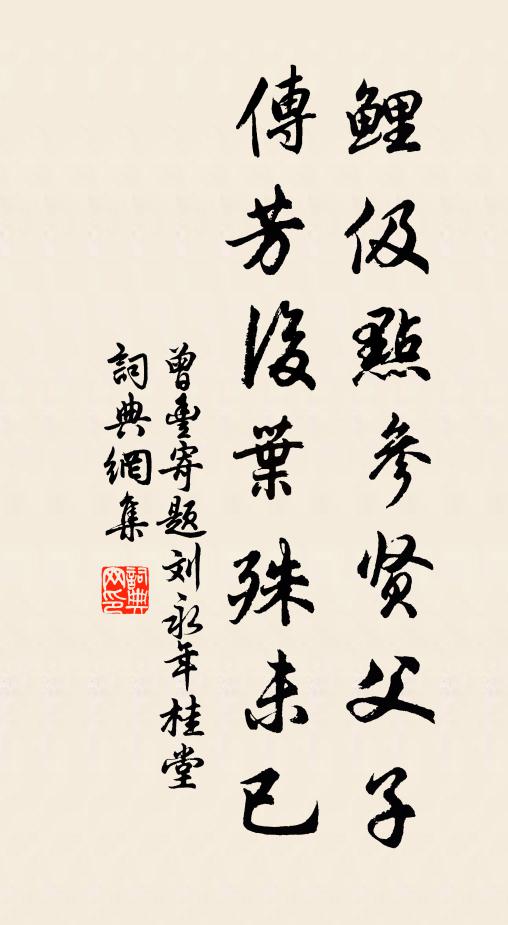 鯉伋點參贤父子
傳芳後葉殊未已
曾豐寄題刘永年桂堂
詞典網集
詞典網印